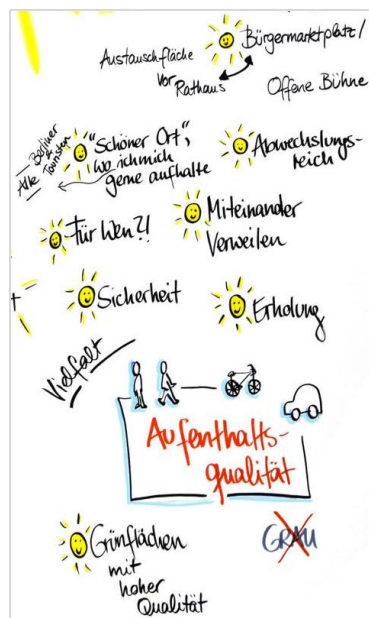 Bürgermarktplatz/
Austauschfläche
vor
Rathaus
Offene Bühne
Berliner
&
Touristen
Alle
"Schöner Ort",
wo ich mich
gerne aufhalte
Abwechslungs-
reich
Für Wen?!
Miteinander
Verweilen
Sicherheit
Erholung
Vielfalt
Aufenthalts-
qualität
Grünflächen
mit
hoher
Qualität
GRAU